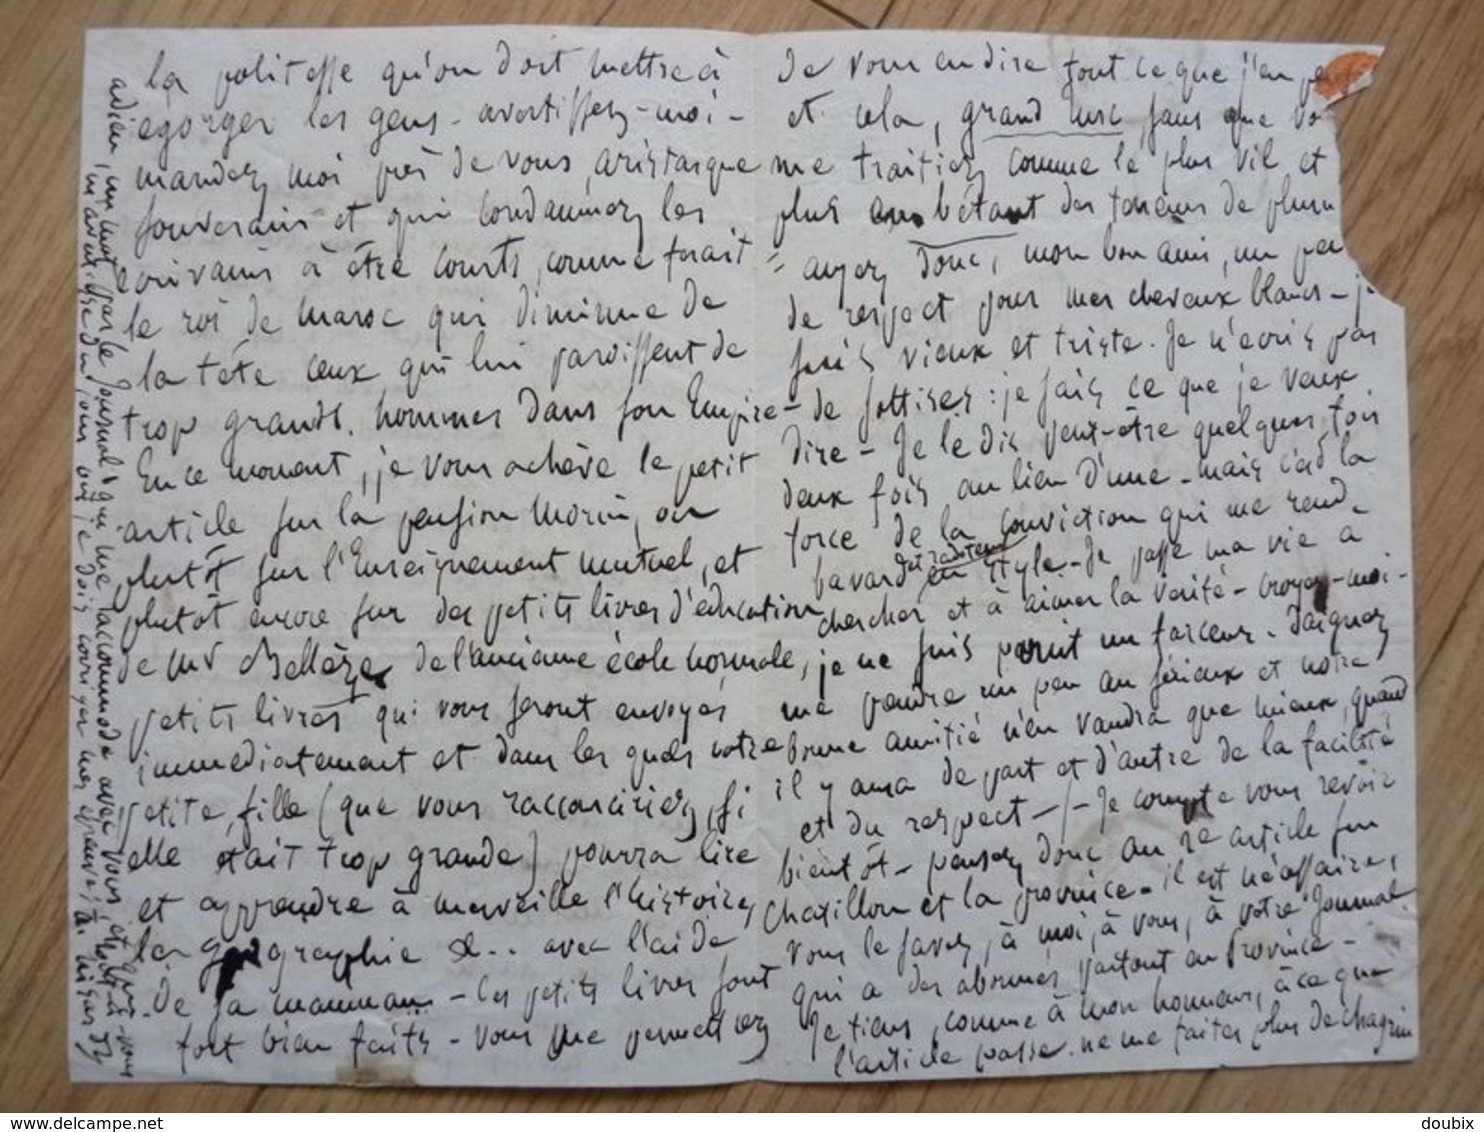 la politesse qu'on doit mettre à
egorger les gens - avertissez-moi -
mandez moi près de vous, aristarque
souverain et qui condamnez les
ecrivains à être courts, comme ferait
le roi de Maroc qui diminue de
la tête ceux qui lui paroissent de
trop grands hommes dans son Empire -
En ce moment, je vous achève le petit
article sur la pension Morin, ou
plutôt sur l'Enseignement mutuel, et
plutôt encore sur des petits livres d'éducation
de Mr de l'ancienne école normale,
petits livres qui vous seront envoyés
immédiatement et dans les quels votre
petite fille (que vous raccourciriez, si
elle était trop grande) pourra lire
et apprendre à merveille l'histoire,
la geographie &.. avec l'aide
de sa maman - Ces petits livres sont
fort bien faits - vous me permettrez
de vous en dire tout ce que j'en
et cela, grand turc, sans que
me traitiez comme le plus vil et
plus embêtant des teneurs de
ayez donc, mon bon ami, un peu
de respect pour mes cheveux blancs -
suis vieux et triste. Je n'écris pas
de sottises : je sais ce que je veux
dire - Je le dis peut-être quelques fois
deux fois au lieu d'une - mais c'est la
force de la conviction qui me rend
bavard en style - Je passe ma vie à
chercher et à aimer la vérité - croyez-moi -
je ne suis point un farceur. Daignez
me prendre un peu au sérieux et notre
bonne amitié n'en vaudra que mieux, quand
il y aura de part et d'autre de la facilité
et du respect -/- Je compte vous revoir
bientôt - pensez donc au 2e article sur
Chatillon et la province - il est nécessaire,
vous le savez, à moi, à vous, à votre Journal
qui a des abonnés partout en Province -
Je tiens, comme à mon honneur, à ce que
l'article passe. ne me faites plus de chagrin
adieu, un mot par le Journal qui me raccommode avec vous, et
m'avertisse du jour où je dois corriger mes épreuves